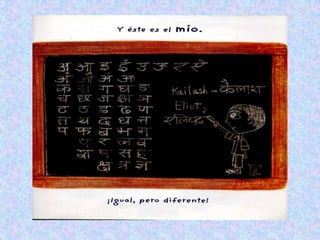 Y éste es el mío.
अ आ इ ई उ ऊ ए ऐ
क ख ग घ ङ
च छ ज झ ञ
ट ठ ड ढ ण
त थ द ध न
प फ ब भ म
य र ल व
क्ष त्र ज्ञ
Kailash → कैलाश
Eliot,
एलियट
¡Igual, pero diferente!